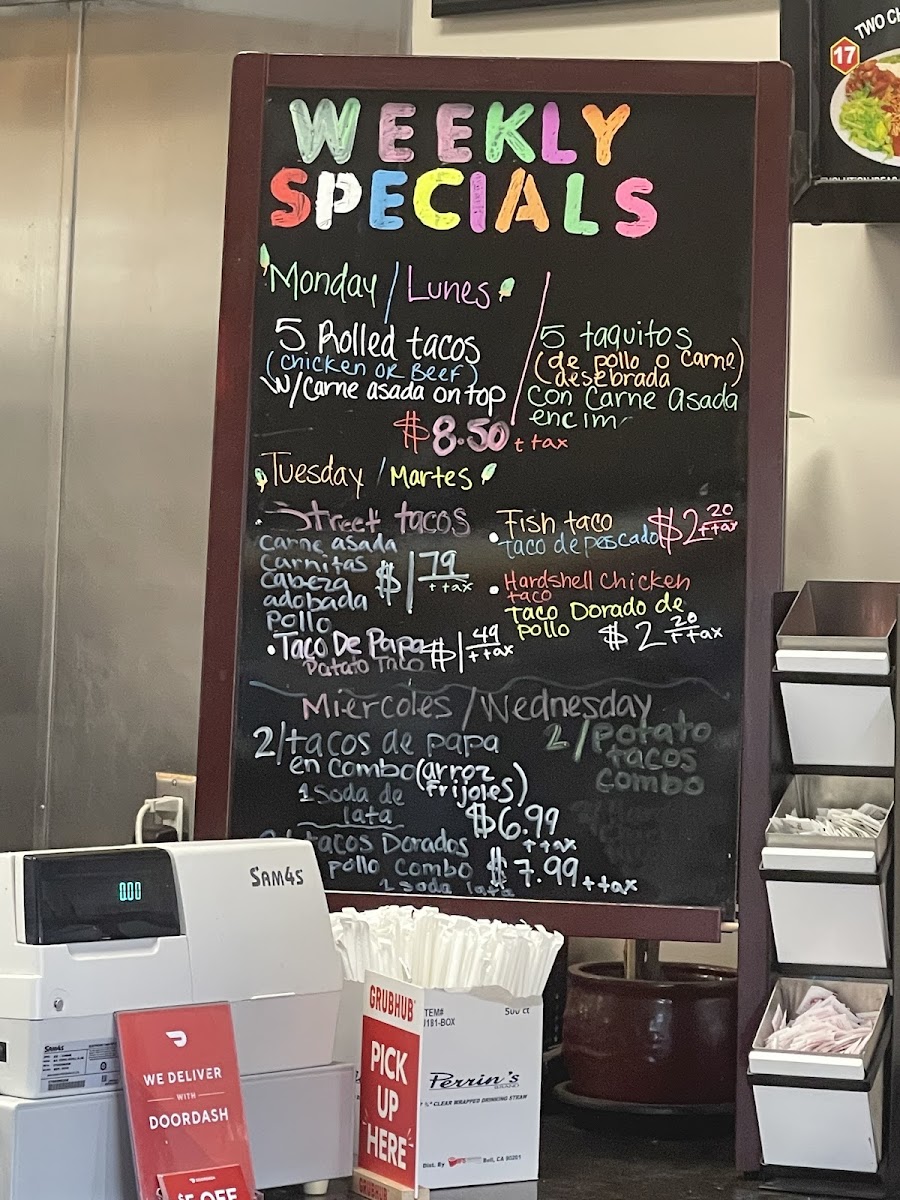 WEEKLY
SPECIALS
Monday / Lunes
5 Rolled tacos
(chicken OR Beef)
W/carne asada on top
5 taquitos
(de pollo o carne)
desebrada
con carne asada
encim
$8.50 + tax
Tuesday / Martes
Street tacos
carne asada
Carnitas
Cabeza
adobada
pollo
$1 79
+ tax
• Taco De Papa
Patato Taco
$1 49
+ tax
• Fish taco
taco de pescado
$2 20
+ tax
• Hardshell Chicken
taco
Taco Dorado de
pollo
$2 20
+ tax
Miercoles / Wednesday
2/tacos de papa
en combo (arroz
frijoles)
1 soda de
lata
$6.99
+ tax
2/potato
tacos
combo
tacos Dorados
pollo combo
1 soda lata
$7.99 + tax
17
TWO
SAM4S
0.00
SAM4S
WE DELIVER
WITH
DOORDASH
$5 OFF
GRUBHUB
PICK
UP
HERE
GRUBHUB
ITEM#
500 ct
Perrin's
CLEAR WRAPPED DRINKING STRAW
Dist. By
Bell, CA 90201